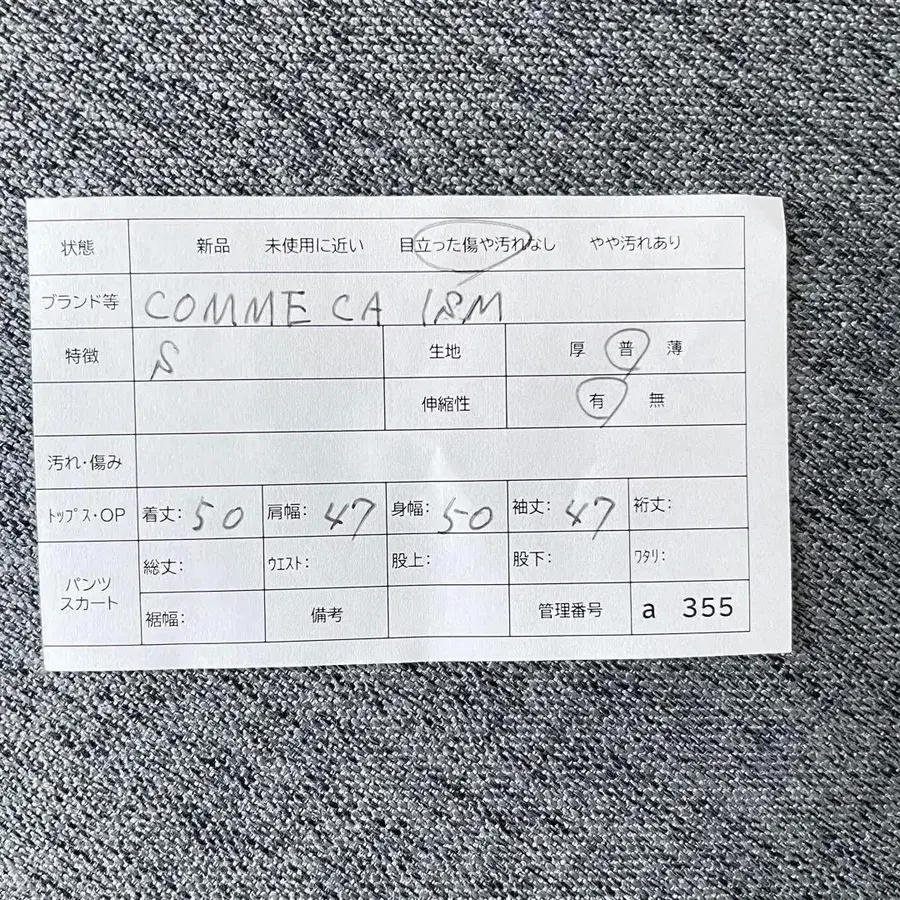 状態 新品 未使用に近い 目立った傷や汚れなし やや汚れあり
ブランド等 COMME CA ISM
特徴 S 生地 厚 普 薄
伸縮性 有 無
汚れ・傷み
トップス・OP 着丈: 50 肩幅: 47 身幅: 50 袖丈: 47 裄丈:
パンツ スカート
総丈: ウエスト: 股上: 股下: ワタリ:
裾幅: 備考 管理番号 a 355